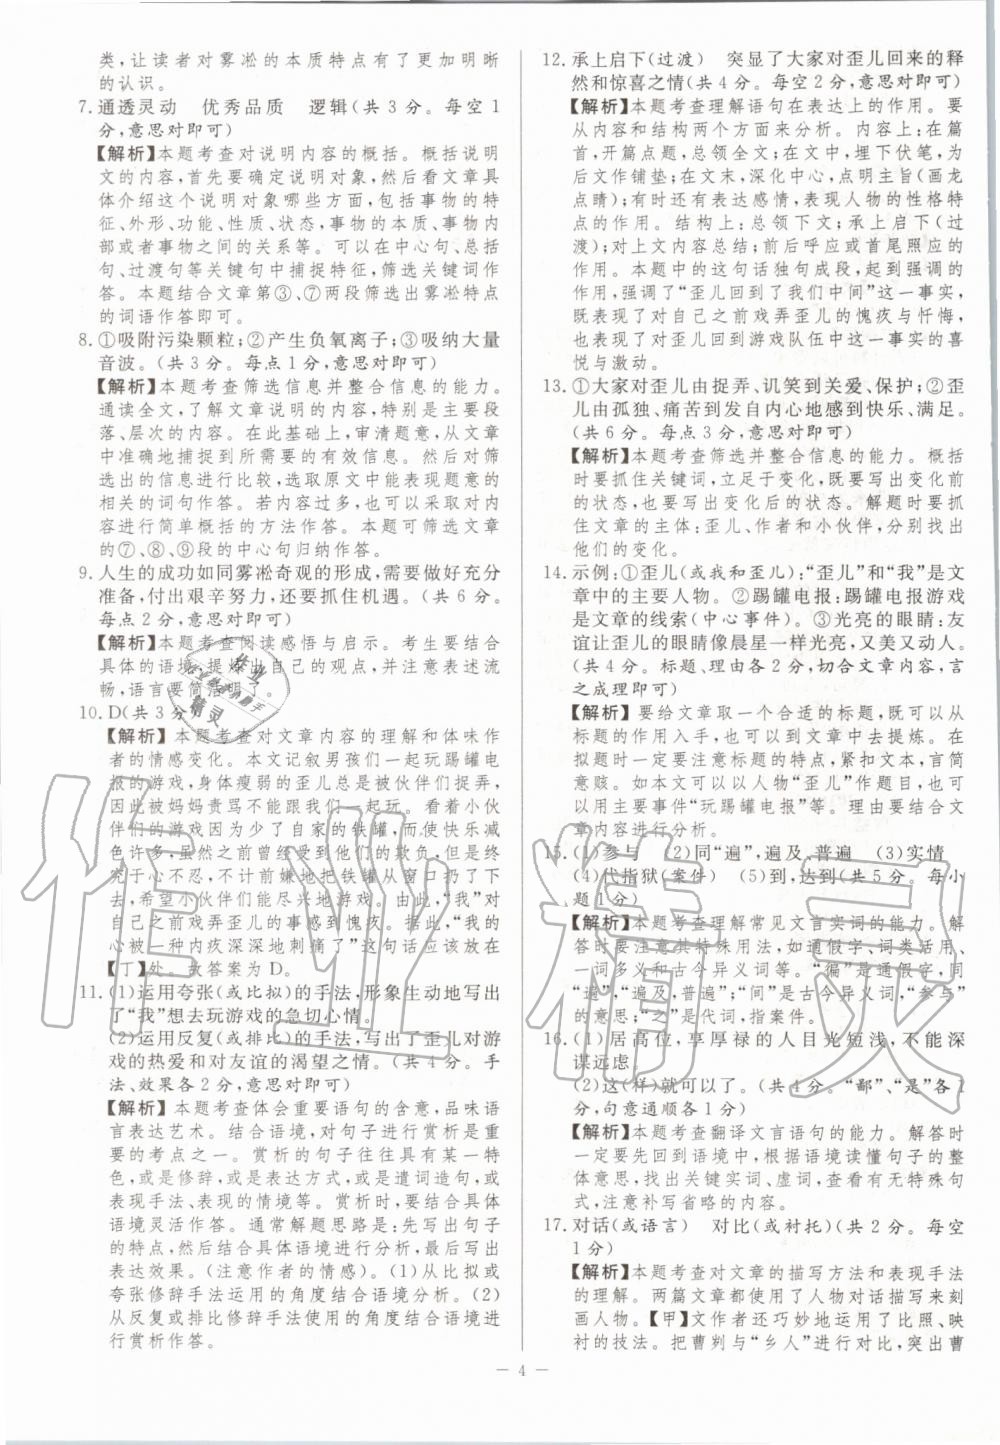 类，让读者对雾凇的本质特点有了更加明晰
的认识。
7. 通透灵动　优秀品质　逻辑(共3分。每空1
分，意思对即可)
【解析】本题考查对说明内容的概括。概括说明
文的内容，首先要确定说明对象，然后看文章具
体介绍这个说明对象哪些方面，包括事物的特
征、外形、功能、性质、状态，事物的本质、事物内
部或者事物之间的关系等。可以在中心句、总括
句、过渡句等关键句中捕捉特征，筛选关键词作
答。本题结合文章第③、⑦两段筛选出雾凇特点
的词语作答即可。
8. ①吸附污染颗粒；②产生负氧离子；③吸纳大量
音波。(共3分。每点1分，意思对即可)
【解析】本题考查筛选信息并整合信息的能力。
通读全文，了解文章说明的内容，特别是主要段
落、层次的内容。在此基础上，审清题意，从文章
中准确地捕捉到所需要的有效信息。然后对筛
选出的信息进行比较，选取原文中能表现题意的
相关的词句作答。若内容过多，也可以采取对内
容进行简单概括的方法作答。本题可筛选文章
的⑦、⑧、⑨段的中心句归纳作答。
9. 人生的成功如同雾凇奇观的形成，需要做好充分
准备，付出艰辛努力，还要抓住机遇。(共6分。
每点2分，意思对即可)
【解析】本题考查阅读感悟与启示。考生要结合
具体的语境，提炼出自己的观点，并注意表述流
畅，语言要简洁明了。
10. D(共3分)
【解析】本题考查对文章内容的理解和体味作
者的情感变化。本文记叙男孩们一起玩踢罐电
报的游戏，身体瘦弱的歪儿总是被伙伴们捉弄，
因此被妈妈责骂不能跟我们一起玩。看着小伙
伴们的游戏因为少了自家的铁罐，而使快乐减
色许多，虽然之前曾经受到他们的欺负，但歪儿
于心不忍，不计前嫌地把铁罐从窗口扔了下
去，希望小伙伴们能尽兴地游戏。由此激起了
我对自己之前戏弄歪儿的愧疚。据此，“我的
心被一种内疚深深地刺痛了”这句话应该放在
【丁】处。故答案为D。
11. (1)运用夸张(或比拟)的手法，形象生动地写出
了“我”想去玩游戏的急切心情。
(2)运用反复(或排比)的手法，写出了歪儿对游
戏的热爱和对友谊的渴望之情。(共4分。手
法、效果各2分，意思对即可)
【解析】本题考查体会重要语句的含意，品味语
言表达艺术。结合语境，对句子进行赏析是重
要的考点之一。赏析的句子往往具有某一特
色，或是修辞，或是表达方式，或是遣词造句，或
表现手法、表现的情境等。赏析时，要结合具体
语境灵活作答。通常解题思路是：先写出句子
的特点，然后结合具体语境进行分析，最后写出
表达效果。(注意作者的情感)。(1)从比拟或
夸张修辞手法运用的角度结合语境分析。(2)
从反复或排比修辞手法运用的角度结合语境进
行赏析作答。
12. 承上启下(过渡)　突显了大家对歪儿回来的释
然和惊喜之情(共4分。每空2分，意思对即可)
【解析】本题考查理解语句在表达上的作用。要
从内容和结构两个方面来分析。内容上：在篇
首，开篇点题，总领全文；在文中，埋下伏笔，为
后文作铺垫；在文末，深化中心，点明主旨(画龙
点睛)；有时在表达感情，表现人物的性格特
点的作用。结构上：总领下文；承上启下(过
渡)；对上文内容总结；前后呼应或首尾照应的
作用。本题中的这句话独句成段，起到强调的
作用，强调了“歪儿回到了我们中间”这一事实，
既表现了对自己之前戏弄歪儿的愧疚与忏悔，
也表现了对歪儿回到游戏队伍中这一事实的喜
悦与激动。
13. ①大家对歪儿由捉弄、讥笑到关爱、保护；②歪
儿由孤独、痛苦到发自内心地感到快乐、满足。
(共6分。每点3分，意思对即可)
【解析】本题考查筛选并整合信息的能力。概括
时要抓住关键词，立足于变化，既要写出变化前
的状态，也要写出变化后的状态。解题时要抓
住文章的主体：歪儿、作者和小伙伴，分别找出
他们的变化。
14. 示例：①歪儿(或我和歪儿)：“歪儿”和“我”是文
章中的主要人物。②踢罐电报：踢罐电报游戏
是文章的线索(中心事件)。③光亮的眼睛：友
谊让歪儿的眼睛像晨星一样光亮，又美又动人。
(共4分。标题、理由各2分，切合文章内容，言
之成理即可)
【解析】要给文章取一个合适的标题，既可以从
标题的作用入手，也可以到文章中去提炼。在
拟题时一定要注意标题的特点，紧扣文本，言简
意赅。如本文可以以人物“歪儿”作题目，也可
以用主要事件“玩踢罐电报”等。理由要结合文
章内容进行分析。
15. (1)参与　(2)同“遍”，遍及、普遍　(3)实情
(4)代指狱(案件)　(5)到，达到(共5分。每小
题1分)
【解析】本题考查理解常见文言实词的能力。解
答时要注意其特殊用法，如通假字、词类活用、
一词多义和古今异义词等。“徧”是通假字，同
“遍”，“遍及，普遍”；“间”是古今异义词，“参与”
的意思；“之”是代词，指案件。
16. (1)居高位，享厚禄的人目光短浅，不能深
谋远虑。
(2)这(样)就可以了。(共4分。“鄙”、“是”各1
分，句意通顺各1分)
【解析】本题考查翻译文言语句的能力。解答时
一定要先回到语境中，根据语境读懂句子的整
体意思，找出关键实词、虚词，查看有无特殊句
式，注意补写省略的内容。
17. 对话(或语言)　对比(或衬托)(共2分。每空
1分)
【解析】本题考查对文章的描写方法和表现手法
的理解。两篇文章都使用了人物对话描写来刻
画人物。【甲】文作者还巧妙地运用了对比、映
衬的技法。把曹刿与“乡人”进行对比，突出曹
— 4 —
作业精灵